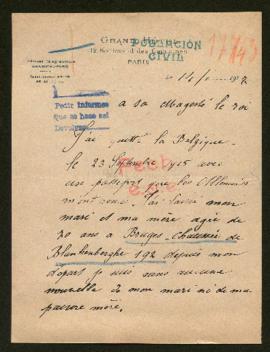 GRAND HOTEL
12 Boulevard des Capucines
PARIS
POBLACION
CIVIL
Petit informes
Que se hace sei
a sa majesté le roi
J'ai quitté la Belgique
le 23 Septembre 1915 avec
un passeport que les Allemands
m'ont J'ai laissé mon
mari et ma mère agée de
70 ans a Bruges Chaussée de
Blankenberghe 192 depuis mon
départ je suis sans aucune
nouvelle de mon mari ni de ma
pauvre mère.